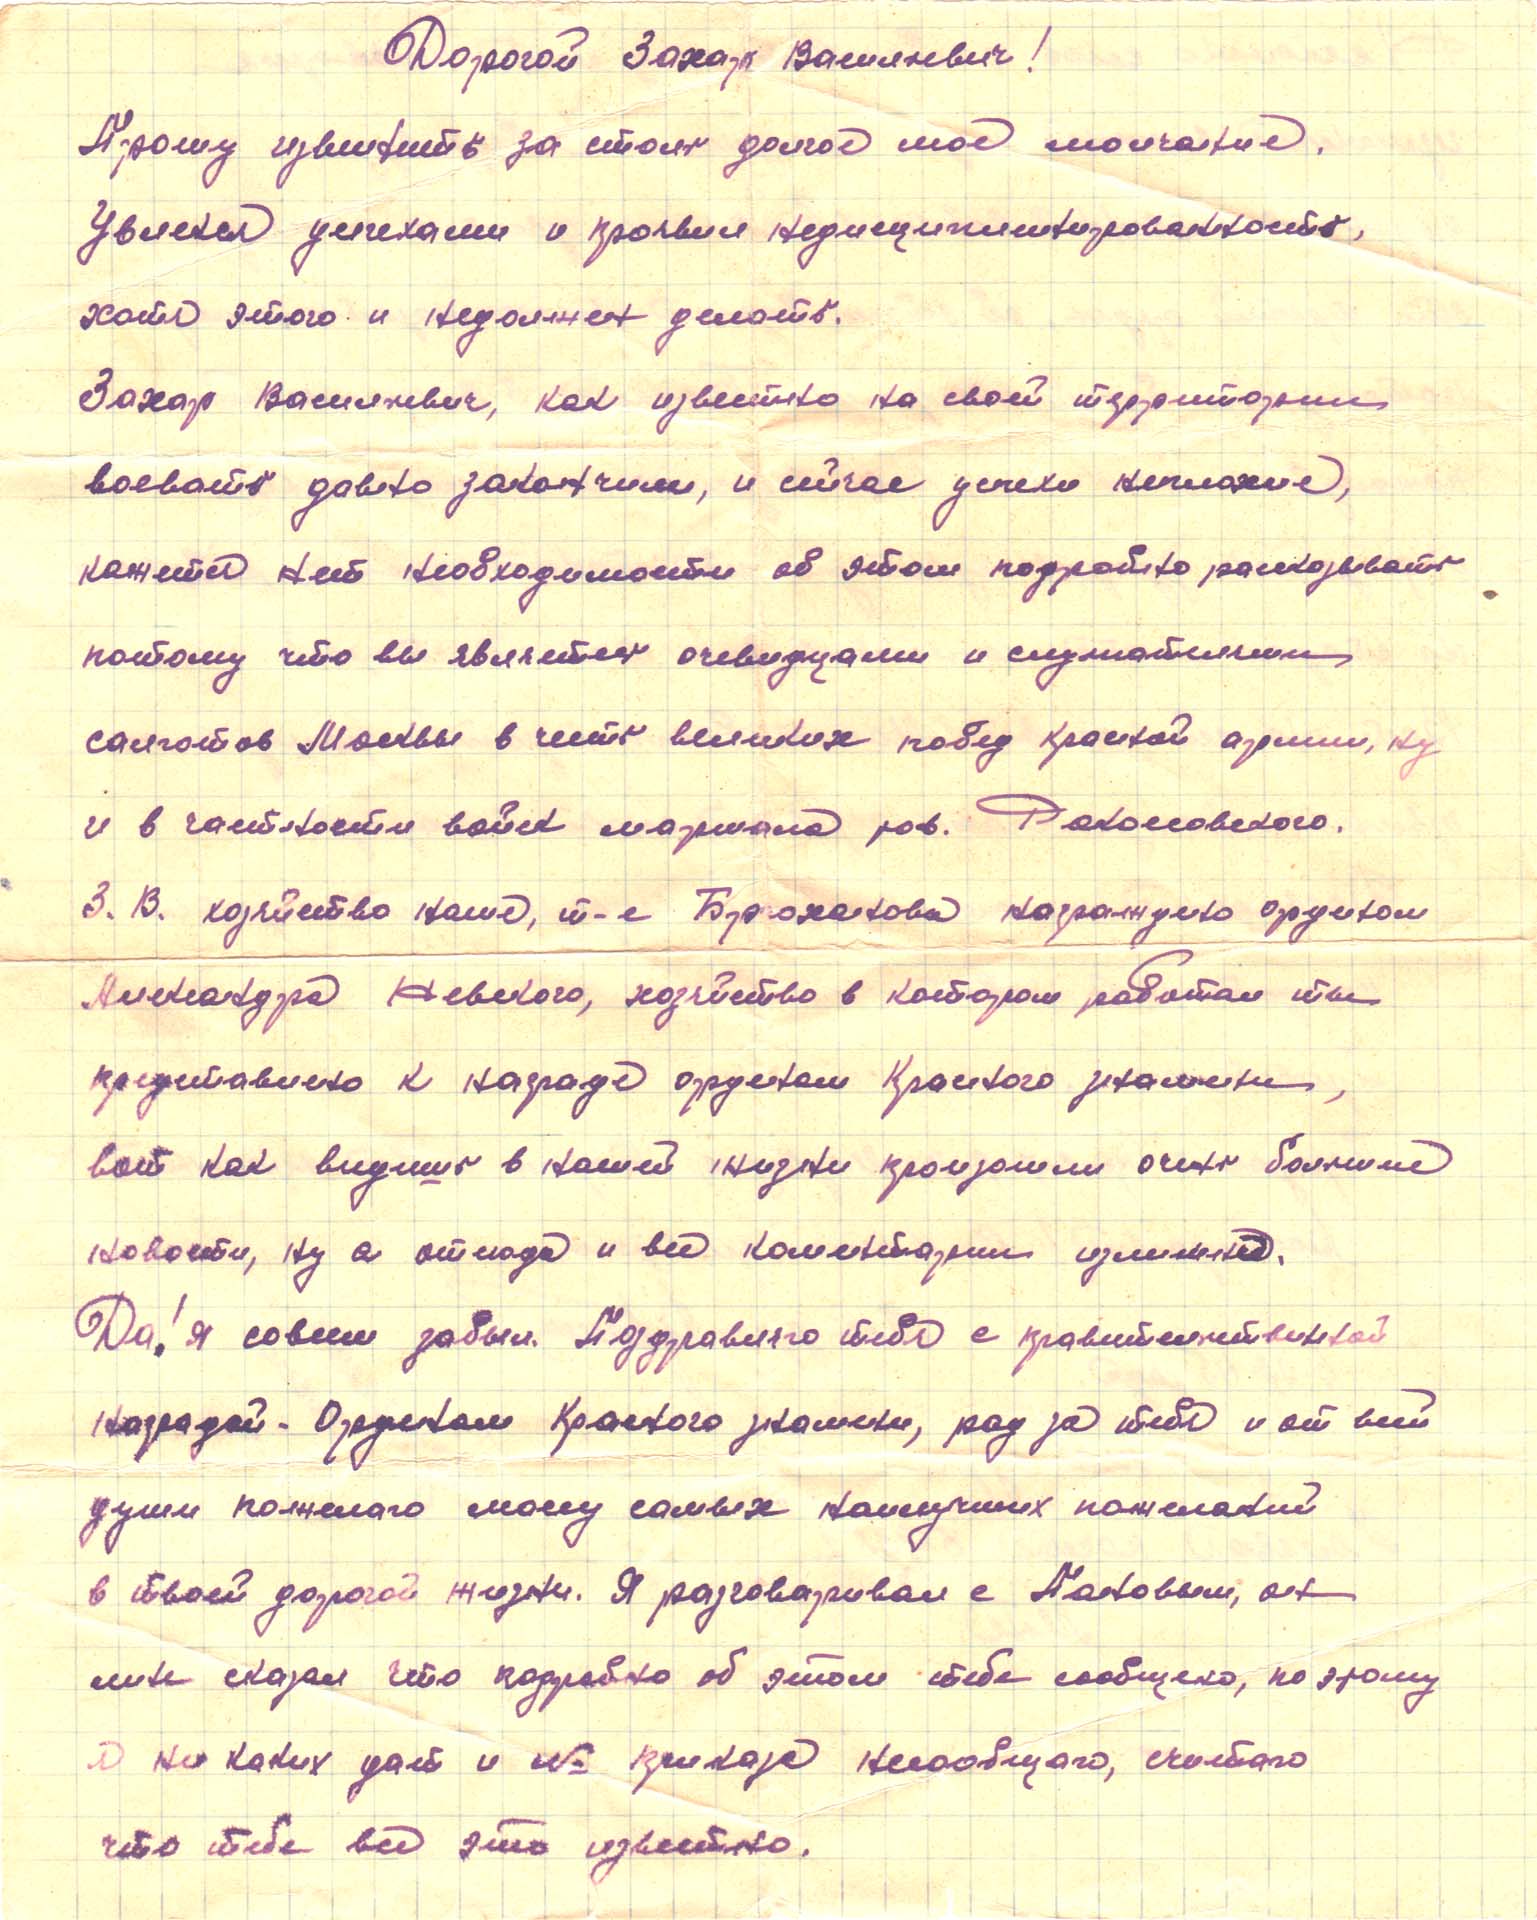 Дорогой Захар Васильевич!
Прошу извинить за столь долгое мое молчание.
Увлекся успехами и проявил недисциплинированность,
хотя этого и недолжен делать.
Захар Васильевич, как известно на своей территории
воевать давно закончили, и сейчас успехи неплохие,
кажется нет необходимости об этом подробно расказывать
потому что вы являетесь очевидцами и слушателями
салютов Москвы в честь великих побед красной армии, ну
и в частности войск маршала тов. Рокоссовского.
З. В. хозяйство наше, т-е Брюханова награждено орденом
Александра Невского, хозяйство в котором работал ты
представлено к награде орденом Красного знамени,
вот как видишь в нашей жизни произошли очень большие
новости, ну а отсюда и все коментарии излишне.
Да! я совсем забыл. Поздравляю тебя с правительственной
наградой - Орденом Красного знамени, рад за тебя и от всей
души пожелаю массу самых наилучших пожеланий
в твоей дорогой жизни. Я разговаривал с Пановым, он
мне сказал что подробно об этом тебе сообщено, по этому
я ни каких дат и № приказа несообщаю, считаю
что тебе всё это известно.